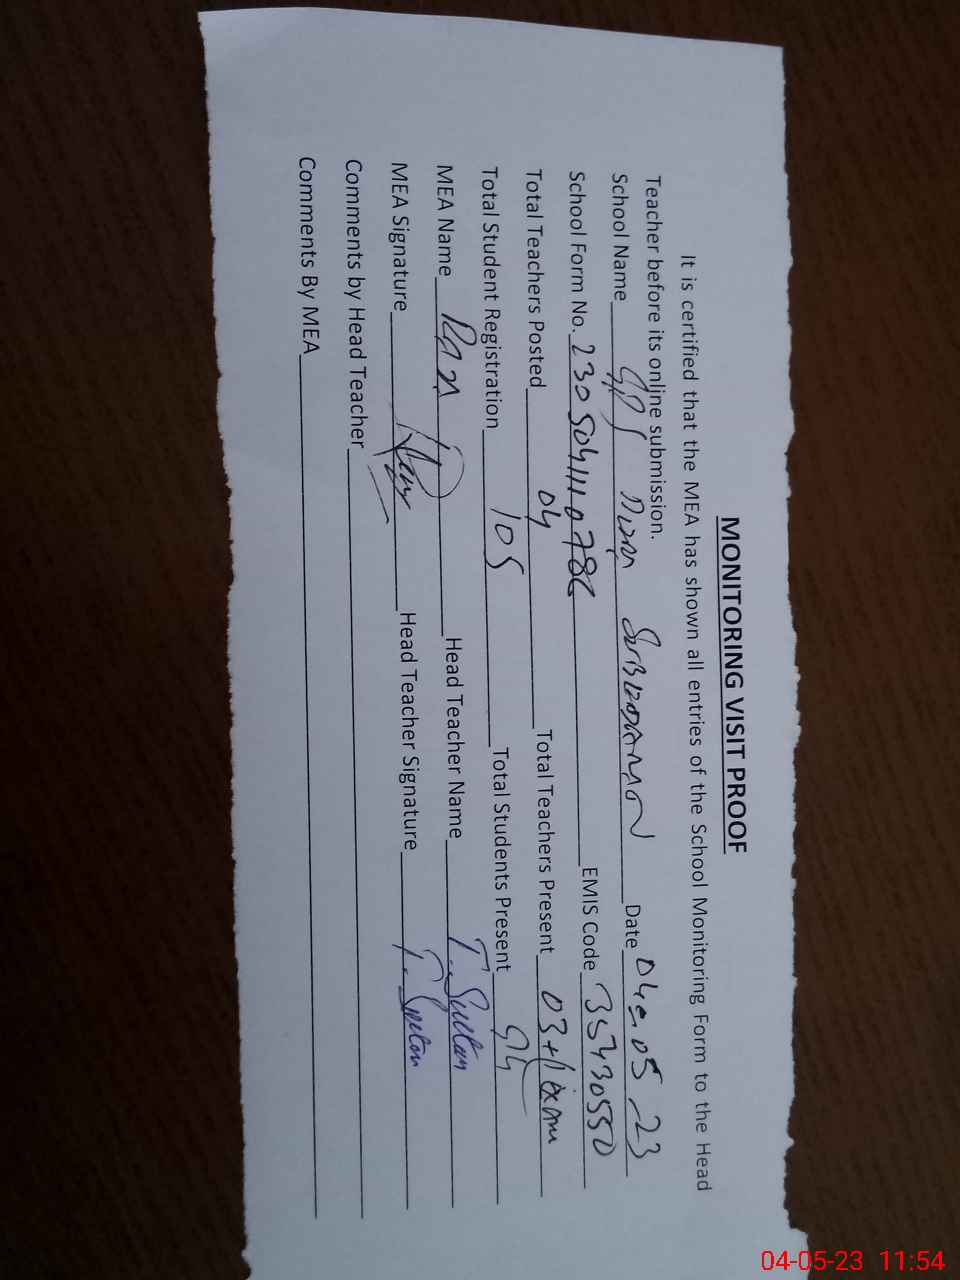 MONITORING VISIT PROOF
It is certified that the MEA has shown all entries of the School Monitoring Form to the Head
Teacher before its online submission.
School Name Date 04-05-23
School Form No. EMIS Code 35430550
Total Teachers Posted 04 Total Teachers Present 03+1 exam
Total Student Registration 105 Total Students Present 94
MEA Name Head Teacher Name T. Sultan
MEA Signature Head Teacher Signature T. Sultan
Comments by Head Teacher
Comments By MEA
04-05-23 11:54